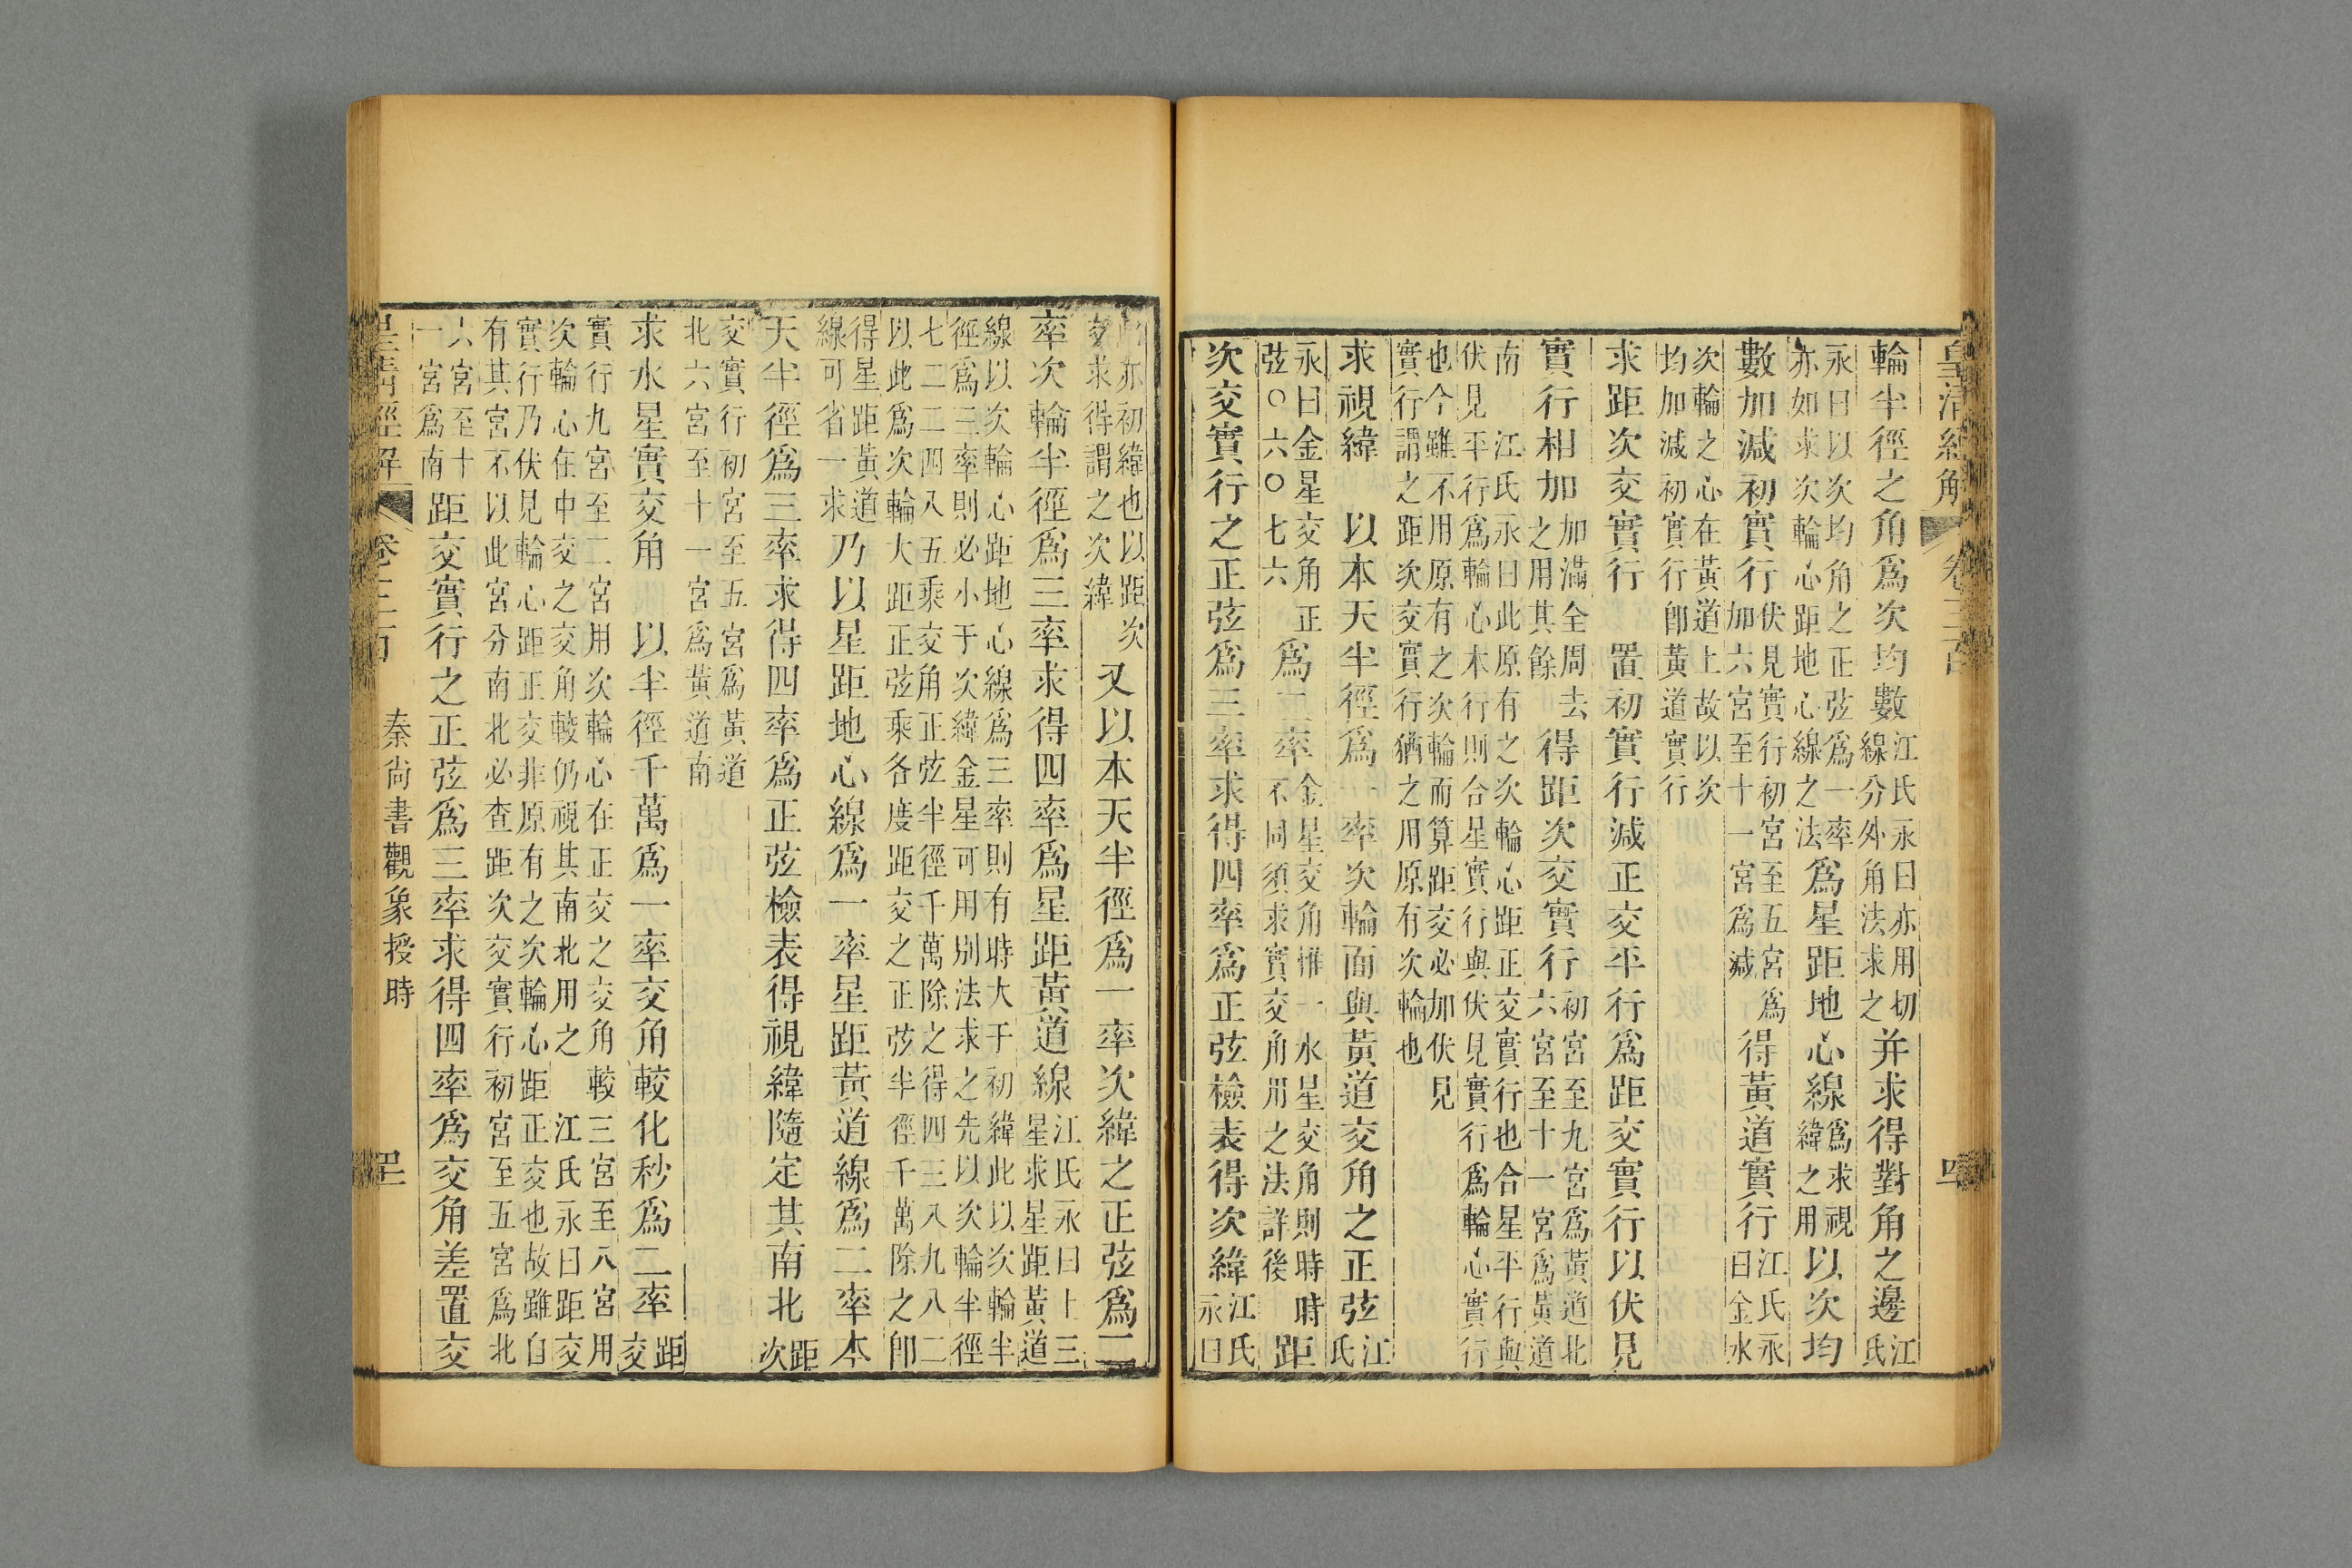 皇清經解 卷三百
輪半徑之角爲次均數江氏永曰亦用切線分外角法求之并求得對角之邊江氏
永曰以次均角之正弦爲一率亦如求次輪心距地心線之法爲星距地心線爲求視緯之用以次均
數加減初實行伏見實行初宮至五宮爲加六宮至十一宮爲減得黃道實行江氏永曰金水
次輪之心在黃道上故以次均加減初實行卽黃道實行
求距次交實行 置初實行減正交平行爲距交實行以伏見
實行相加加滿全周去之用其餘得距次交實行初宮至九宮爲黃道北六宮至十一宮爲黃道
南 江氏永曰此原有之次輪心距正交實行也合星平行與伏見平行爲輪心本行則合星實行與伏見實行爲輪心實行
也今雖不用原有之次輪而算距交必加伏見實行謂之距次交實行猶之用原有次輪也
求視緯 以本天半徑爲一率次輪面與黃道交角之正弦江氏
永曰金星交角正弦〇六〇七六爲二率金星交角惟一水星交角則時時不同須求實交角用之法詳後距
次交實行之正弦爲三率求得四率爲正弦檢表得次緯江氏永曰
亦初緯也以距次交求得謂之次緯又以本天半徑爲一率次緯之正弦爲二
率次輪半徑爲三率求得四率爲星距黃道線江氏永曰上三星求星距黃道
線以次輪心距地心線爲三率則有時大于初緯此以次輪半徑爲三率則必小于次緯金星可用别法求之先以次輪半徑
七二二四八五乘交角正弦半徑千萬除之得四三八九八二以此爲次輪大距正弦乘各度距交之正弦半徑千萬除之卽
得星距黃道線可省一求乃以星距地心線爲一率星距黃道線爲二率本
天半徑爲三率求得四率爲正弦檢表得視緯隨定其南北距次
交實行初宮至五宮爲黃道北六宮至十一宮爲黃道南
求水星實交角 以半徑千萬爲一率交角較化秒爲二率距交
實行九宮至二宮用次輪心在正交之交角較三宮至八宮用次輪心在中交之交角較仍視其南北用之 江氏永曰距交
實行乃伏見輪心距正交非原有之次輪心距正交也故雖自有其宮不以此宮分南北必查距次交實行初宮至五宮爲北
六宮至十一宮爲南距交實行之正弦爲三率求得四率爲交角差置交
皇清經解 卷三百 秦尙書觀象授時